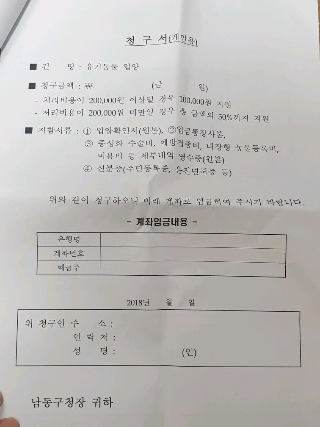 청 구 서(개인용)
■ 건 명 : 유기동물 입양
■ 청구금액 : ₩ (금 원)
- 처리비용이 200,000원 이상일 경우 100,000원 지원
- 처리비용이 200,000원 미만일 경우 총 금액의 50%까지 지원
■ 지참서류 : ① 입양확인서(원본), ②입금통장사본,
③ 중성화 수술비, 예방접종비, 내장형 동물등록비,
미용비 등 세부내역 영수증(원본)
④ 신분증(주민등록증, 운전면허증 등)
위와 같이 청구하오니 아래 계좌로 입금하여 주시기 바랍니다.
- 계좌입금내용 -
은행명
계좌번호
예금주
2018년 월 일
위 청구인 주 소 :
연 락 처 :
성 명 : (인)
남동구청장 귀하